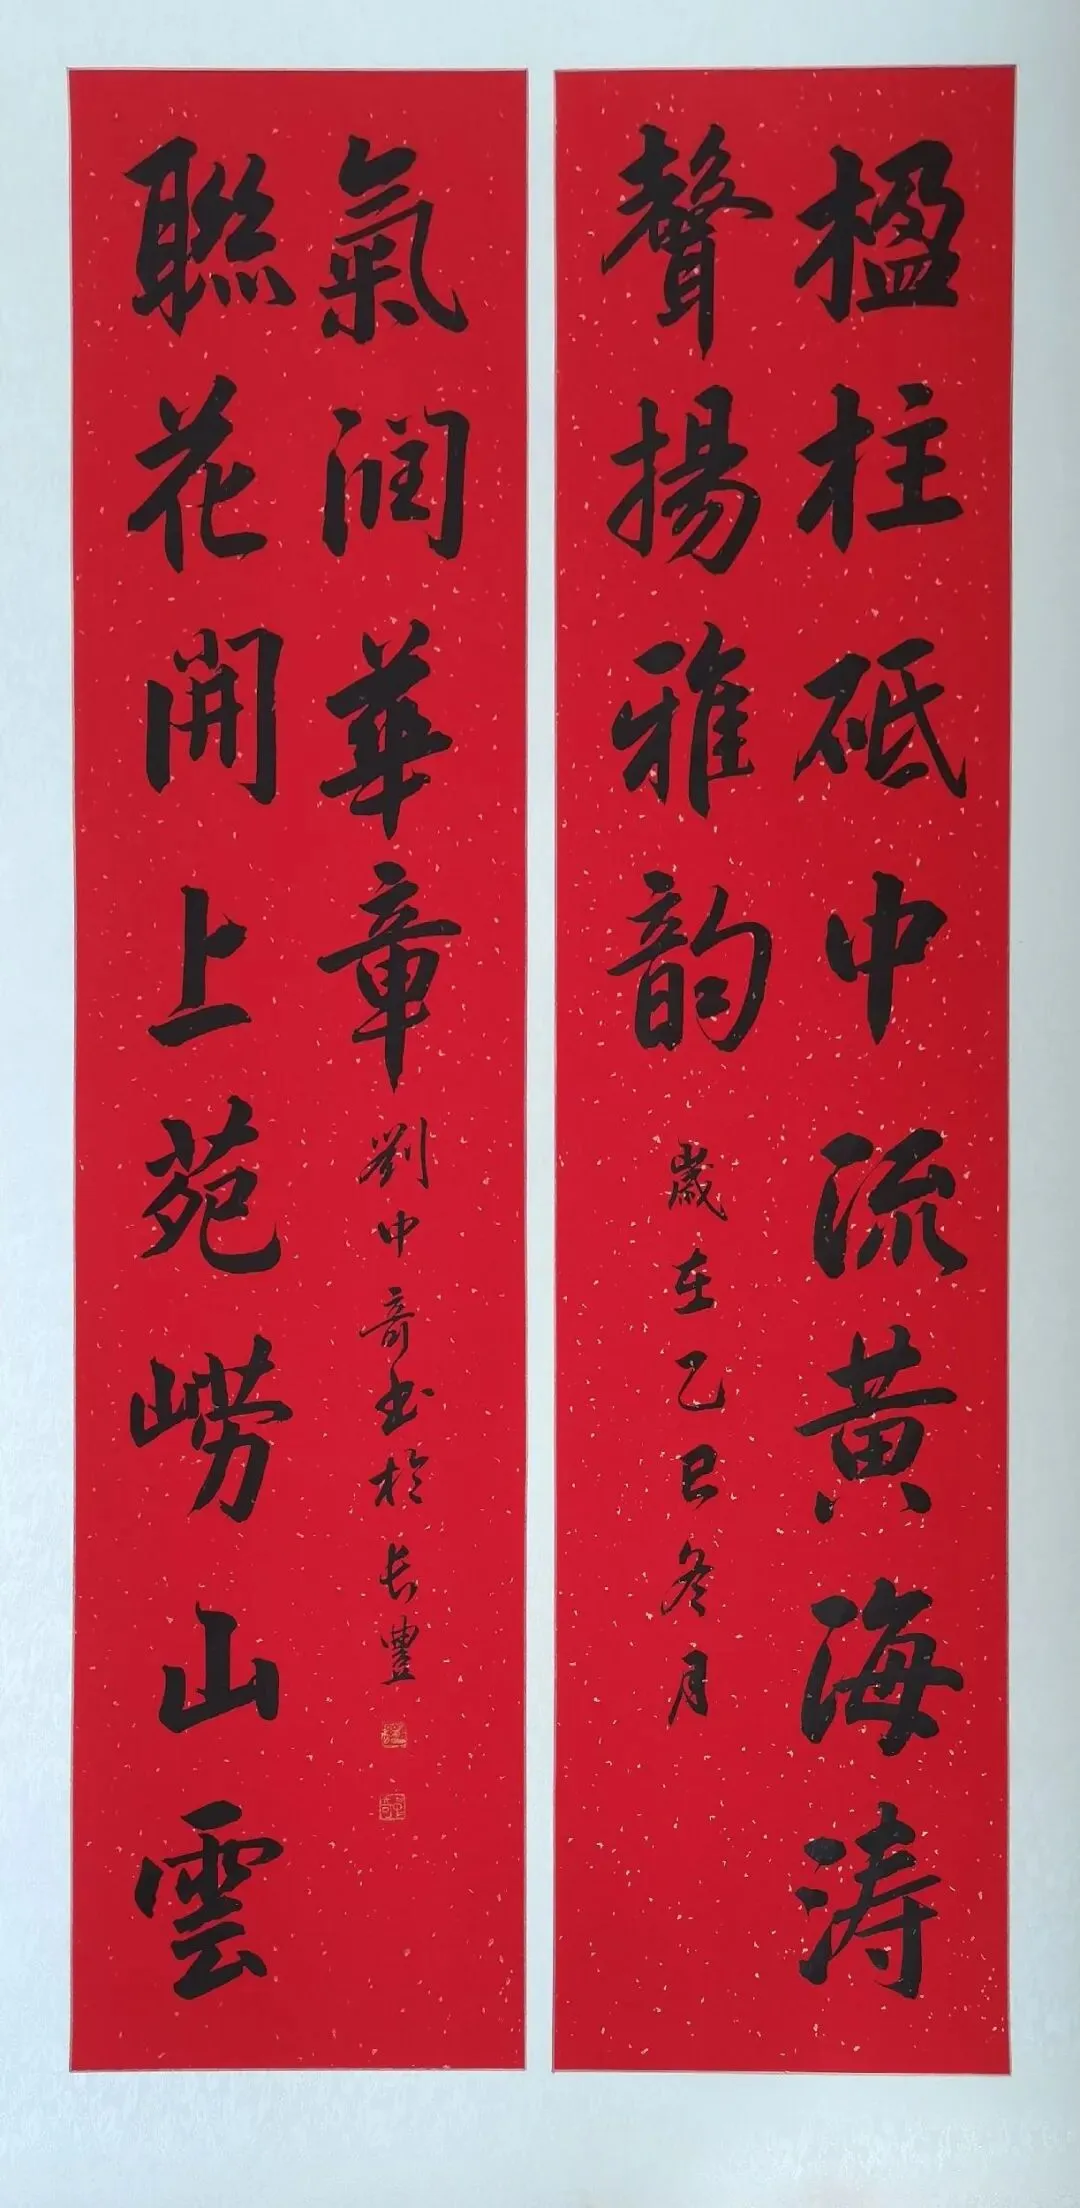 楹柱砥中流黄海涛
聲揚雅韵
歲在乙巳冬月
聯花開上苑崂山雲
氣润華章
劉中奇书於长豊